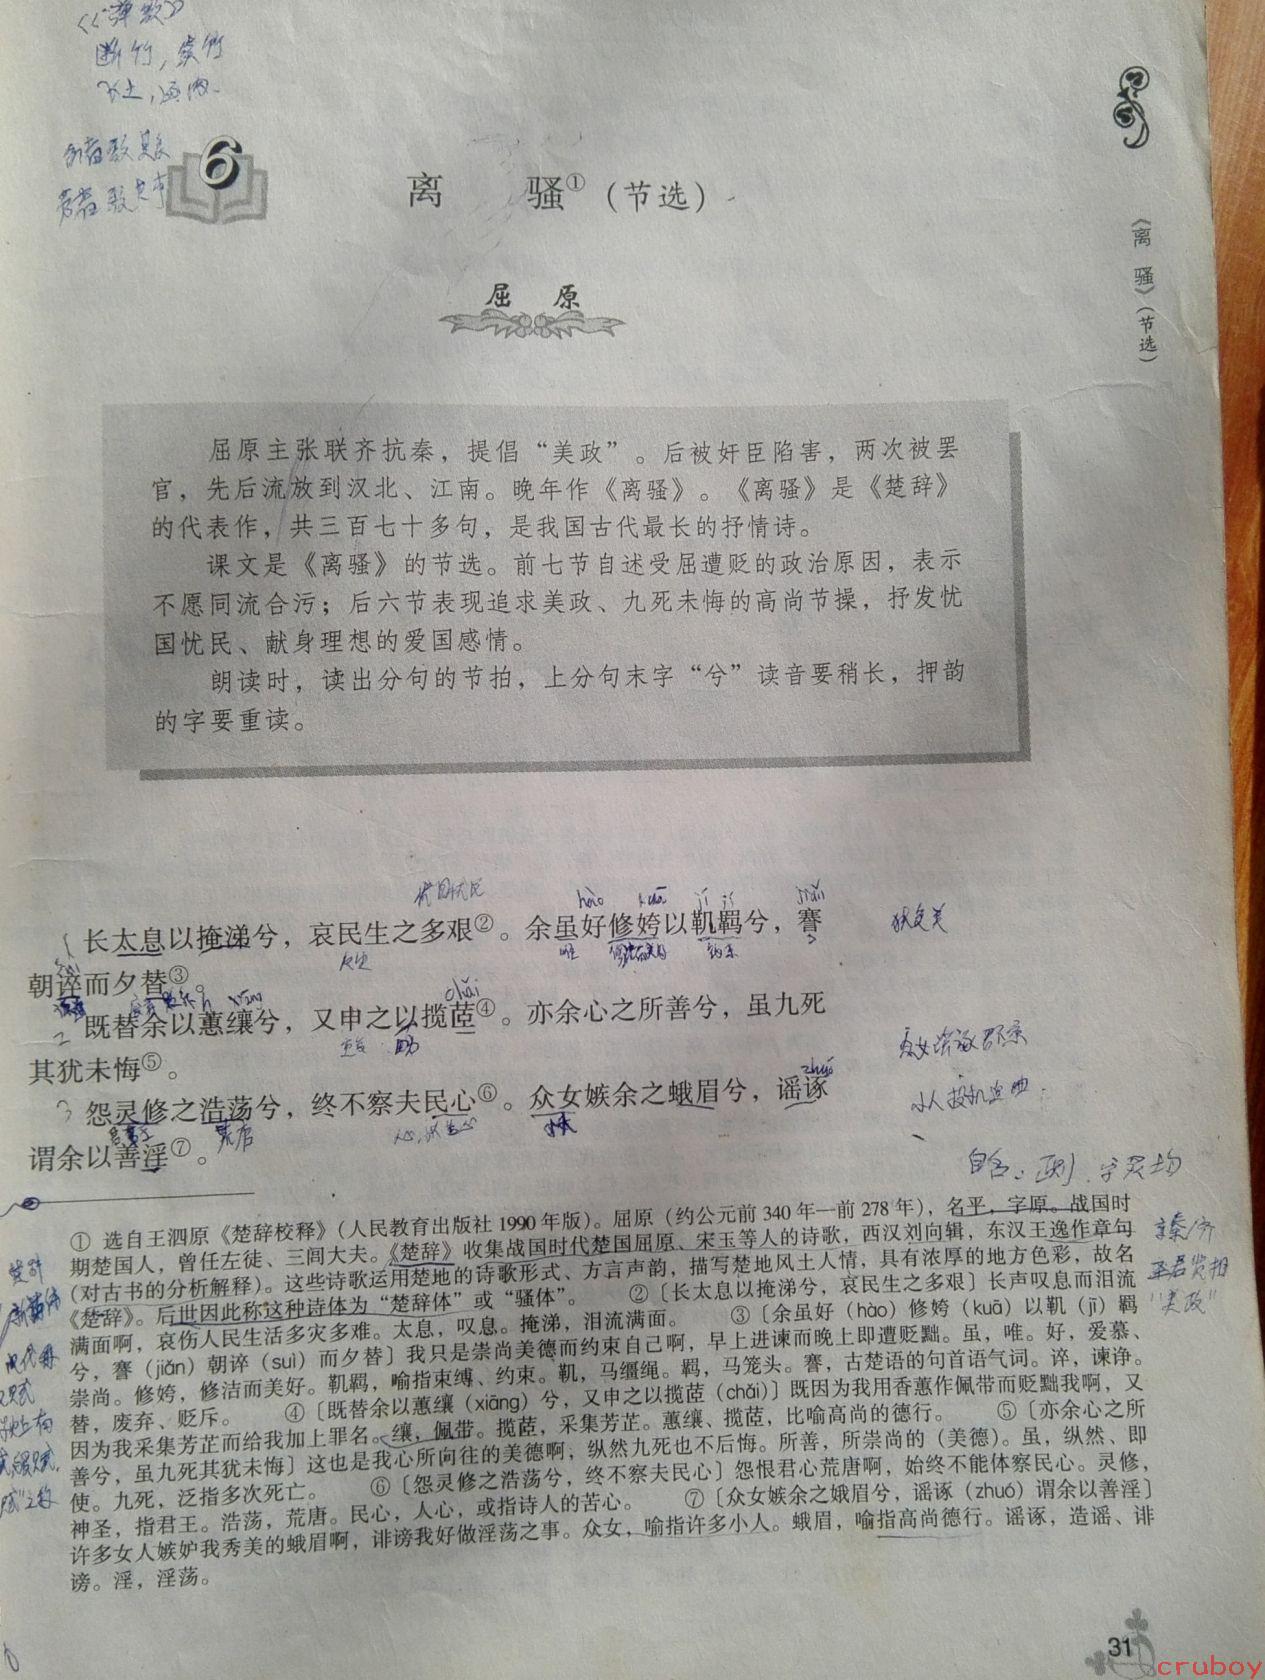 《弹歌》
断竹，续竹
飞土，逐肉
6
离 骚①（节选）
《离骚》（节选）
屈 原
屈原主张联齐抗秦，提倡“美政”。后被奸臣陷害，两次被罢
官，先后流放到汉北、江南。晚年作《离骚》。《离骚》是《楚辞》
的代表作，共三百七十多句，是我国古代最长的抒情诗。
课文是《离骚》的节选。前七节自述受屈遭贬的政治原因，表示
不愿同流合污；后六节表现追求美政、九死未悔的高尚节操，抒发忧
国忧民、献身理想的爱国感情。
朗读时，读出分句的节拍，上分句末字“兮”读音要稍长，押韵
的字要重读。
忧国忧民 hào kuā jī jī jiǎn
1 长太息以掩涕兮，哀民生之多艰②。余虽好修姱以靰羁兮，謇
朝谇而夕替③。
xiāng chǎi
2 既替余以蕙纕兮，又申之以揽茝④。亦余心之所善兮，虽九死
其犹未悔⑤。
zhuó
3 怨灵修之浩荡兮，终不察夫民心⑥。众女嫉余之蛾眉兮，谣诼
荒唐
谓余以善淫⑦。
自名：正则 字灵均
① 选自王泗原《楚辞校释》（人民教育出版社1990年版）。屈原（约公元前340年—前278年），名平，字原。战国时
期楚国人，曾任左徒、三闾大夫。《楚辞》收集战国时代楚国屈原、宋玉等人的诗歌，西汉刘向辑，东汉王逸作章句
（对古书的分析解释）。这些诗歌运用楚地的诗歌形式、方言声韵，描写楚地风土人情，具有浓厚的地方色彩，故名
《楚辞》。后世因此称这种诗体为“楚辞体”或“骚体”。 ②〔长太息以掩涕兮，哀民生之多艰〕长声叹息而泪流
满面啊，哀伤人民生活多灾多难。太息，叹息。掩涕，泪流满面。 ③〔余虽好（hào）修姱（kuā）以靰（jī）羁
兮，謇（jiǎn）朝谇（suì）而夕替〕我只是崇尚美德而约束自己啊，早上进谏而晚上即遭贬黜。虽，唯。好，爱慕、
崇尚。修姱，修洁而美好。靰羁，喻指束缚、约束。靰，马缰绳。羁，马笼头。謇，古楚语的句首语气词。谇，谏诤。
替，废弃、贬斥。 ④〔既替余以蕙纕（xiāng）兮，又申之以揽茝（chǎi）〕既因为我用香蕙作佩带而贬黜我啊，又
因为我采集芳芷而给我加上罪名。纕，佩带。揽茝，采集芳芷。蕙纕、揽茝，比喻高尚的德行。 ⑤〔亦余心之所
善兮，虽九死其犹未悔〕这也是我心所向往的美德啊，纵然九死也不后悔。所善，所崇尚的（美德）。虽，纵然、即
使。九死，泛指多次死亡。 ⑥〔怨灵修之浩荡兮，终不察夫民心〕怨恨君心荒唐啊，始终不能体察民心。灵修，
神圣，指君王。浩荡，荒唐。民心，人心，或指诗人的苦心。 ⑦〔众女嫉余之蛾眉兮，谣诼（zhuó）谓余以善淫〕
许多女人嫉妒我秀美的蛾眉啊，诽谤我好做淫荡之事。众女，喻指许多小人。蛾眉，喻指高尚德行。谣诼，造谣、诽
谤。淫，淫荡。
31
cruboy